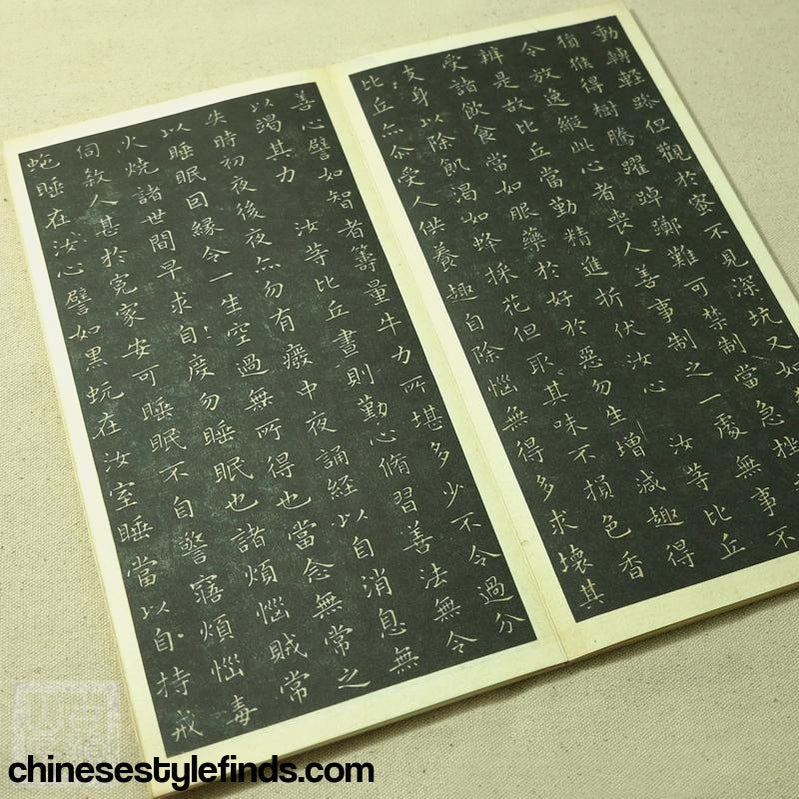 動轉輕躁但觀於蜜不見深坑又如
猿猴得樹騰躍踔躑難可禁制當急挫
令放逸縱此心者喪人善事制之一處無事不
辨是故比丘當勤精進折伏汝心 汝等比丘
受諸飲食當如服藥於好於惡勿生增減趣得
支身以除飢渴如蜂採花但取其味不損色香
比丘亦尒受人供養趣自除惱無得多求壞其
善心譬如智者籌量牛力所堪多少不令過分
以竭其力 汝等比丘晝則勤心脩習善法無令
失時初夜後夜亦勿有廢中夜誦経以自消息無
以睡眠因緣令一生空過無所得也當念無常之
火燒諸世間早求自度勿睡眠也諸煩惱賊常
伺煞人甚於寃家安可睡眠不自警寤煩惱毒
虵睡在汝心譬如黑蚖在汝室睡當以自持戒
chinesestylefinds.com